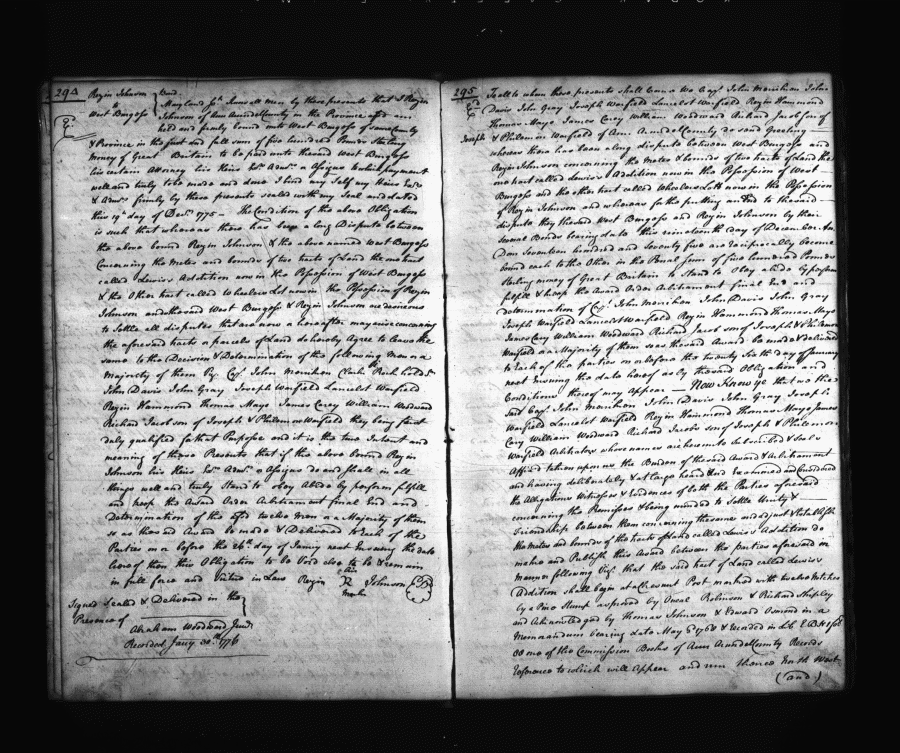 294
Rezin Johnson Bond
to
West Burgess
Maryland Sc. Know all men by these presents that I Rezin
Johnson of Ann Arundel County in the Province aforesd am
held and firmly bound unto West Burgess of same County
& Province in the just and full sum of five hundred Pounds Sterling
money of Great Britain to be paid unto the said West Burgess
his certain Attorney his Heirs Exrs Admrs or Assigns to which payment
well and truly to be made and done I bind my self my Heirs Exrs
& Admrs firmly by these presents sealed with my Seal and dated
this 19th day of Decr 1775 - The Condition of the above Obligation
is such that whereas there has been a long Dispute between
the above bound Rezin Johnson & the above named West Burgess
Concerning the Metes and bounds of two tracts of Land the one tract
called Lewis's Addition now in the Possession of West Burgess
& the Other tract called Wheelers Lott now in the Possession of Rezin
Johnson and the said West Burgess & Rezin Johnson are desirous
to Settle all disputes that are now or hereafter may arise concerning
the aforesaid tracts or parcels of Land do hereby Agree to leave the
same to the Decision & Determination of the following Men or a
majority of them Viz. Capt. John Merrikin
John Davis John Gray Joseph Warfield Lancelot Warfield
Rezin Hammond Thomas Mayo James Carey William Woodward
Richard Jacob son of Joseph & Philemon Warfield they being first
duly qualified for that Purpose and it is the true Intent and
meaning of these Presents that if the above bound Rezin
Johnson his Heirs Exrs Admrs or Assigns do and shall in all
things well and truly Stand to Obey Abide by perform fulfill
and keep the Award Order Arbitrament final End and
Determination of the afsd twelve Men or a Majority of them
so as the said Award is made & Delivered to Each of the
Parties on or before the 26th day of Janry next Ensuing the date
hereof then this Obligation to be Void else to be & remain
in full force and Virtue in Law Rezin his R mark Johnson
Signed Sealed & Delivered in the
Presence of
Abraham Woodward Junr
Recorded Janry 30th 1776
295
To all to whom these presents shall Come we Capt John Merrikin John
Davis John Gray Joseph Warfield Lancelot Warfield Rezin Hammond
Thomas Mayo James Carey William Woodward Richard Jacob son of
Joseph & Philemon Warfield of Ann Arundel County do send Greeting
whereas there has been a long dispute between West Burgess and
Rezin Johnson concerning the Metes & bounds of two tracts of Land the
one tract called Lewis's Addition now in the Possession of West
Burgess and the other tract called Wheelers Lott now in the Possession
of Rezin Johnson and whereas for the putting an End to the said
dispute they the said West Burgess and Rezin Johnson by their
several Bonds bearing date this nineteenth day of December Ano
Dom Seventeen hundred and Seventy five are reciprocally become
bound each to the Other in the Penal Sum of five hundred Pounds
Sterling money of Great Britain to Stand to Obey abide by perform
fulfill & keep the Award Order Arbitrament final End and
determination of Capt John Merrikin John Davis John Gray
Joseph Warfield Lancelot Warfield Rezin Hammond Thomas Mayo
James Carey William Woodward Richard Jacob son of Joseph & Philemon
Warfield or a Majority of them so as the said Award be made & delivered
to Each of the parties on or before the twenty Sixth day of January
next Ensuing the date hereof as by the said Obligation and
Conditions thereof may appear - Now Know ye that we the
said Capt John Merrikin John Davis John Gray Joseph
Warfield Lancelot Warfield Rezin Hammond Thomas Mayo James
Carey William Woodward Richard Jacob son of Joseph & Philemon
Warfield Arbitrators whose names are hereunto Subscribed & Seals
Affixed taken upon us the Burden of the said Award & Arbitrament
and having deliberately & at large heard and Examined and Considered
the Allegations Witnesses & Evidences of both the Parties aforesaid
concerning the Premises & being minded to Settle Unity &
Friendship between them concerning the same and adjust & Establish
the metes and bounds of the tracts of Land called Lewis's Addition do
make and Publish this Award between the parties aforesaid in
manner following Viz. that the said tract of Land called Lewis's
Addition shall begin at a Chesnut Post marked with twelve Notches
by a Pine Stump as proved by Oneal Robinson & Richard Shipley
and Acknowledged by Thomas Johnson & Edward Osmond in a
Memorandum bearing date May 6th 1768 & Recorded in Lib
one of the Commission Books of Ann Arundel County Records
Reference to which will Appear and run thence North West
(and)